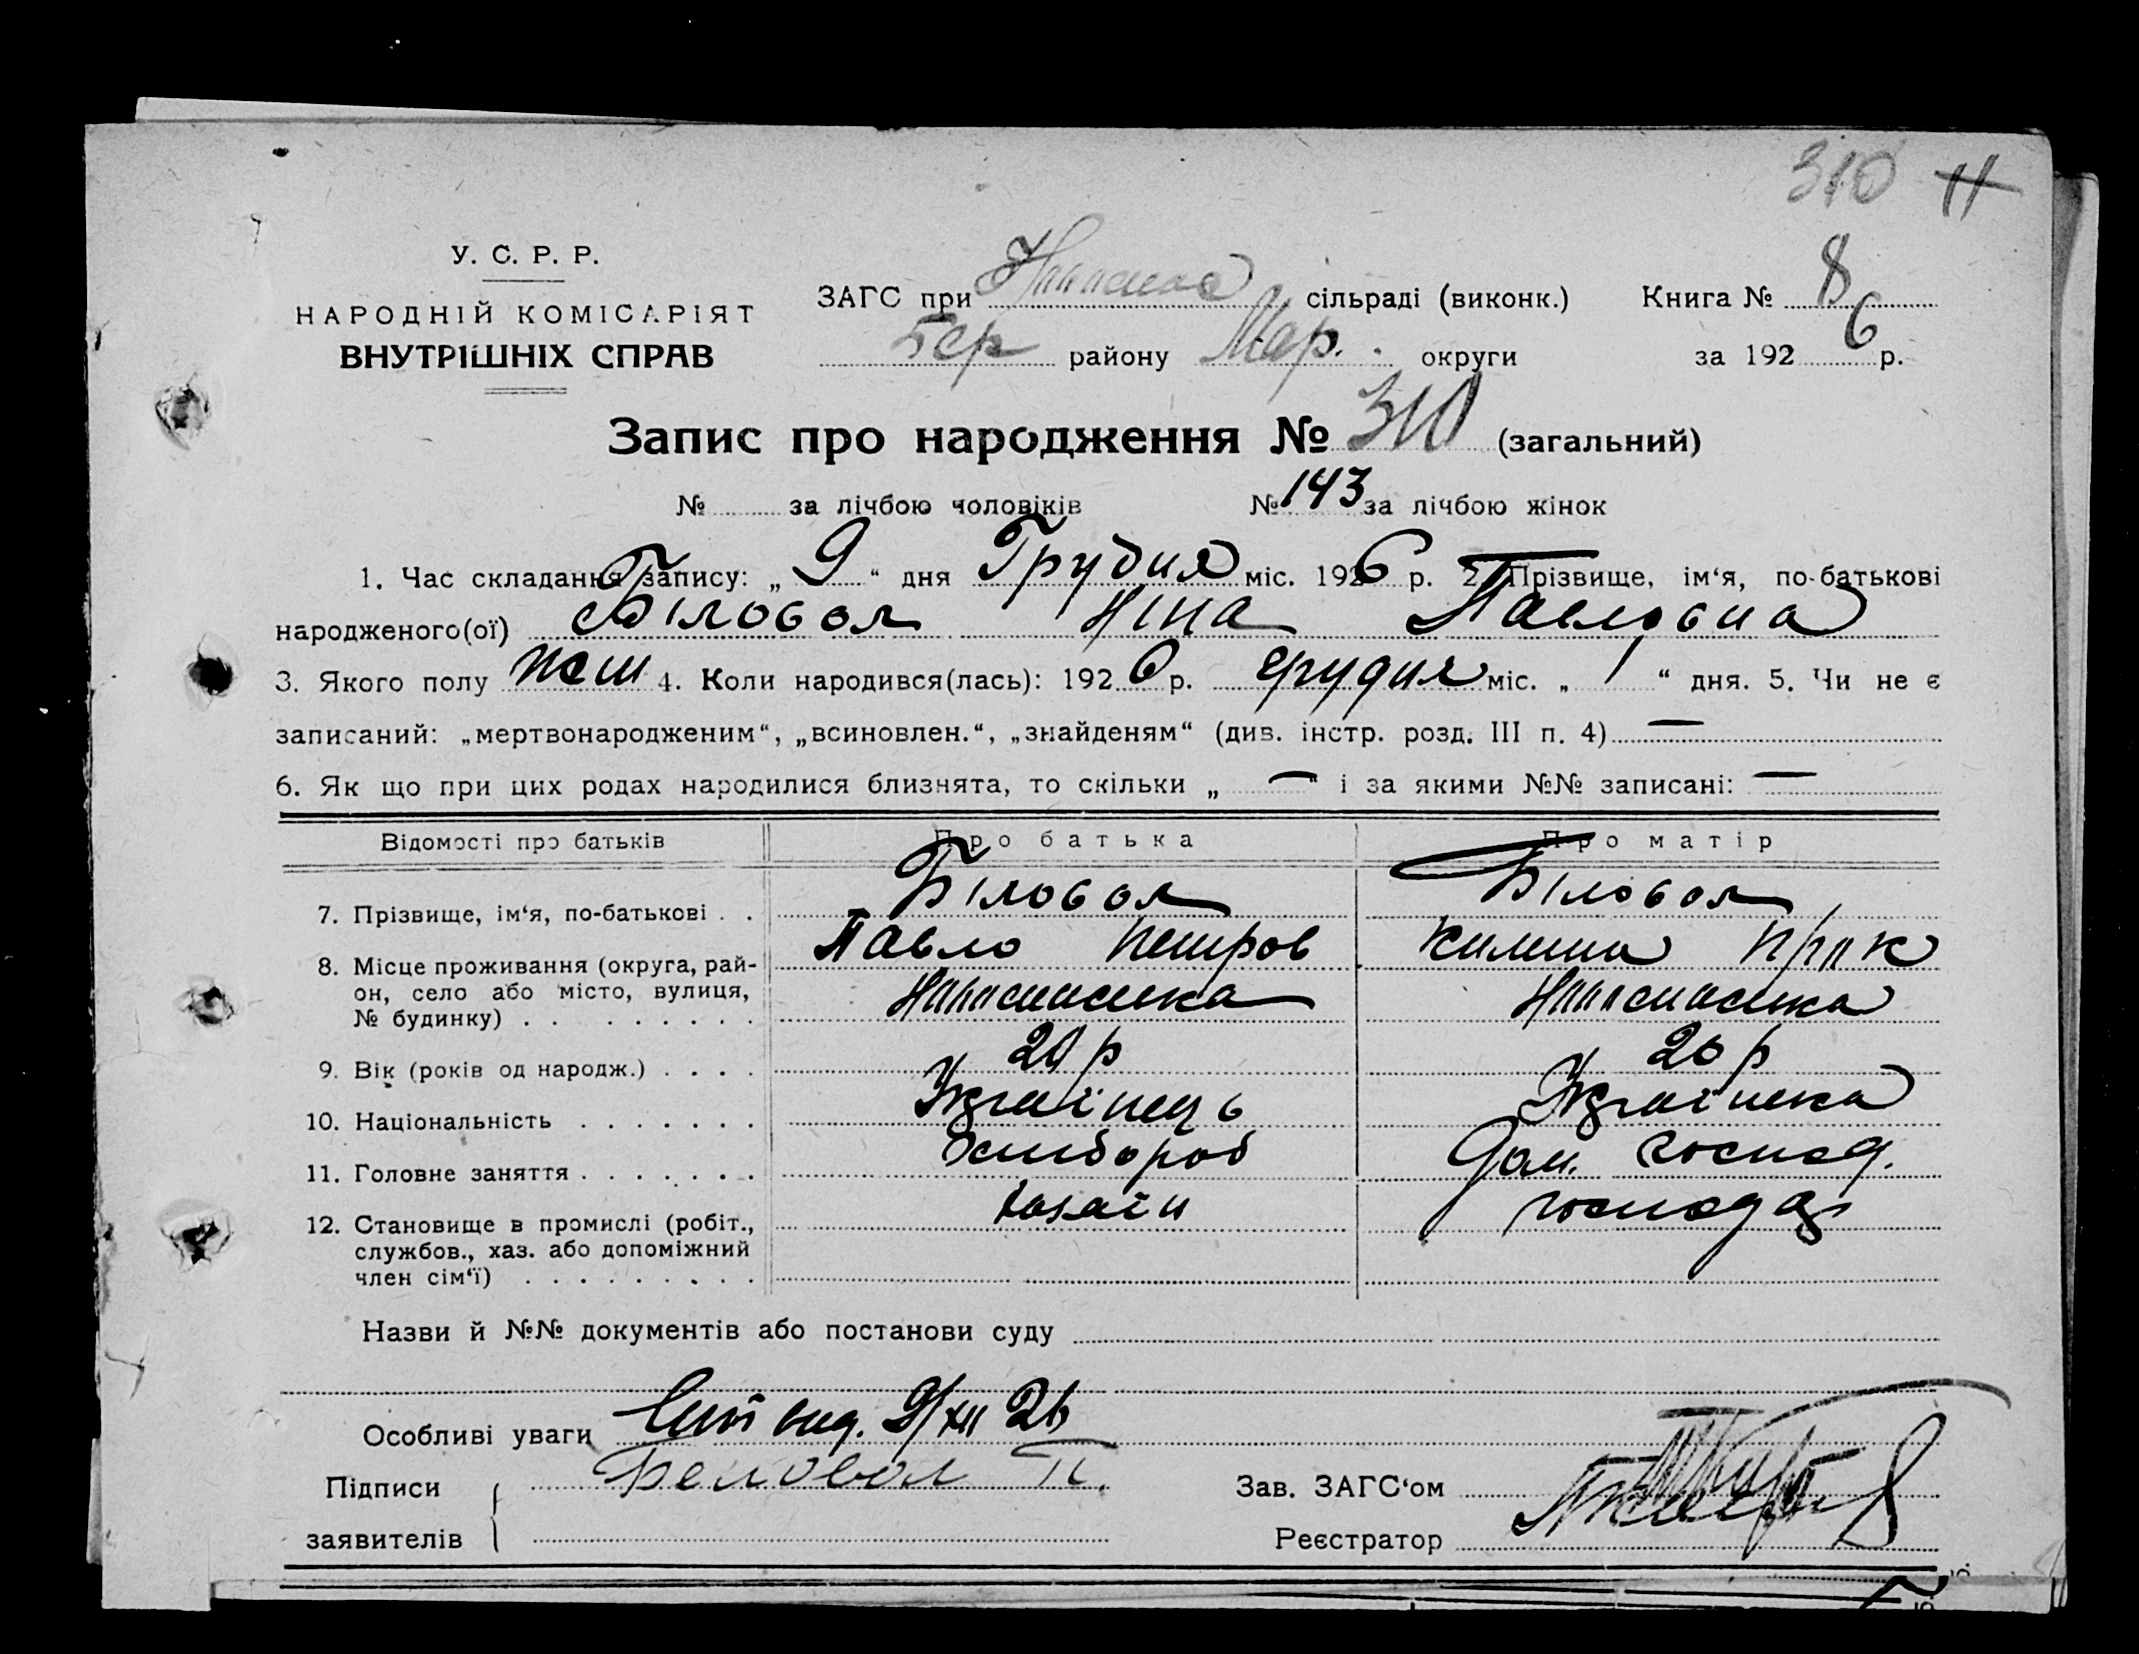 310 11
У. С. Р. Р.
НАРОДНІЙ КОМІСАРІЯТ
ВНУТРІШНІХ СПРАВ
ЗАГС при сільраді (виконк.) Книга № 8
Бер району Мар. округи за 192 6 р.
Запис про народження № 310 (загальний)
№ за лічбою чоловіків № 143 за лічбою жінок
1. Час складання запису: „ 9 “ дня Грудня міс. 192 6 р. 2. Прізвище, ім‘я, по-батькові
народженого(ої) Біловол Ніна Павловна
3. Якого полу жін 4. Коли народився(лась): 192 6 р. грудня міс. „ 1 “ дня. 5. Чи не є
записаний: „мертвонародженим“, „всиновлен.“, „знайденям“ (див. інстр. розд. III п. 4) —
6. Як що при цих родах народилися близнята, то скільки „ — “ і за якими №№ записані: —
Відомості про батьків Про батька Про матір
7. Прізвище, ім‘я, по-батькові . . Біловол Біловол
Павло Петров
8. Місце проживання (округа, рай-
он, село або місто, вулиця,
№ будинку) . . . . . . . . .
9. Вік (років од народж.) . . . . 26 р
10. Національність . . . . . . . Українець Українка
11. Головне заняття . . . . . . . Хлібороб Дом. господ.
12. Становище в промислі (робіт.,
службов., хаз. або допоміжний
член сім‘ї) . . . . . . . . . хазаїн
Назви й №№ документів або постанови суду
Особливі уваги 9/XII 26
Підписи Беловол П. Зав. ЗАГС‘ом
заявителів Реєстратор